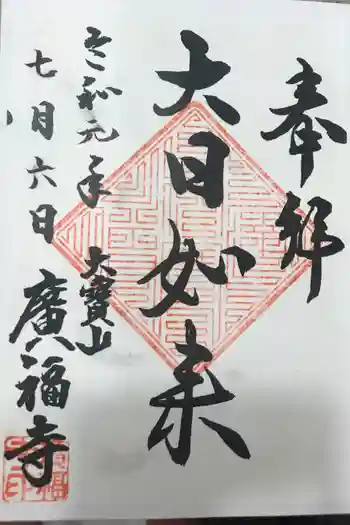 奉拝
大日如来
大寳山
令和元年
七月六日
廣福寺